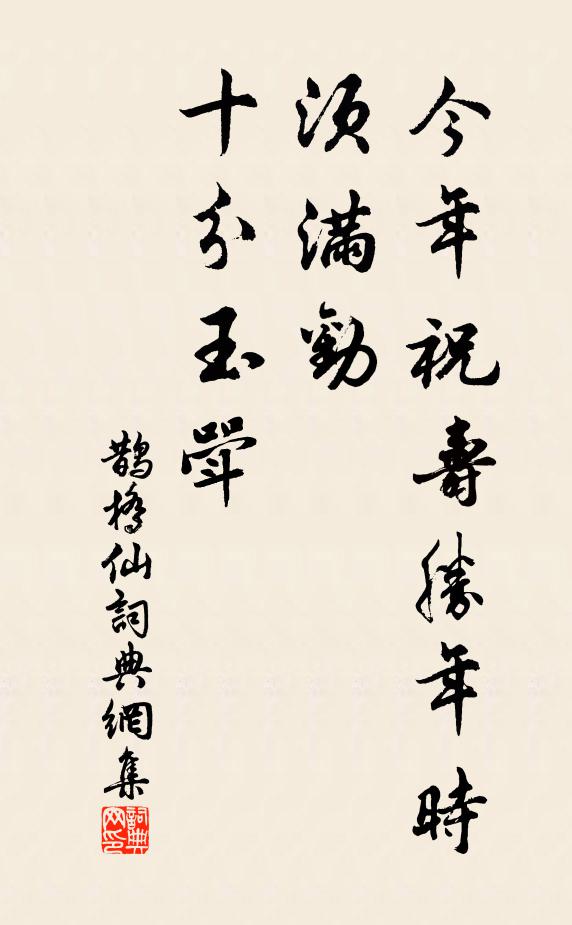 今年祝壽勝年時
須滿勸
十分玉斝
鵲橋仙詞典網集
詞典網印